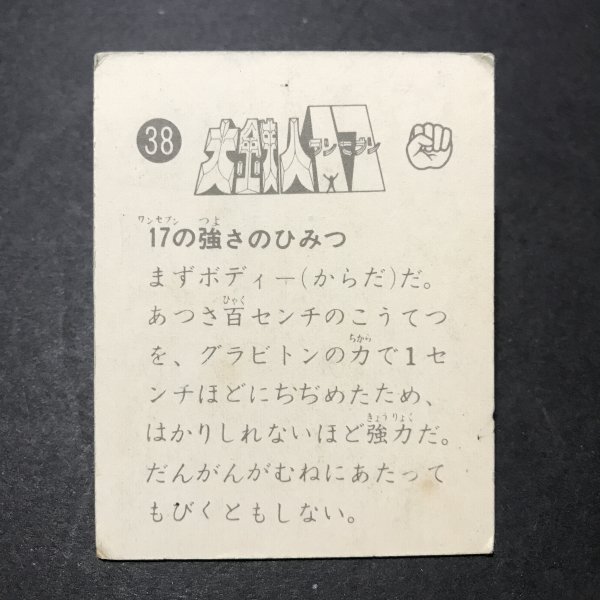 38
大鉄人17
ワンセブン
ワンセブン つよ
17の強さのひみつ
まずボディー(からだ)だ。
ひゃく
あつさ百センチのこうてつ
ちから
を、グラビトンの力で1セ
ンチほどにぢぢめたため、
きょうりょく
はかりしれないほど強力だ。
だんがんがむねにあたって
もびくともしない。